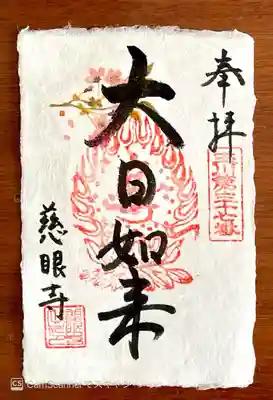 奉拝
大日如来
慈眼寺
CS CamScannerでスキャン